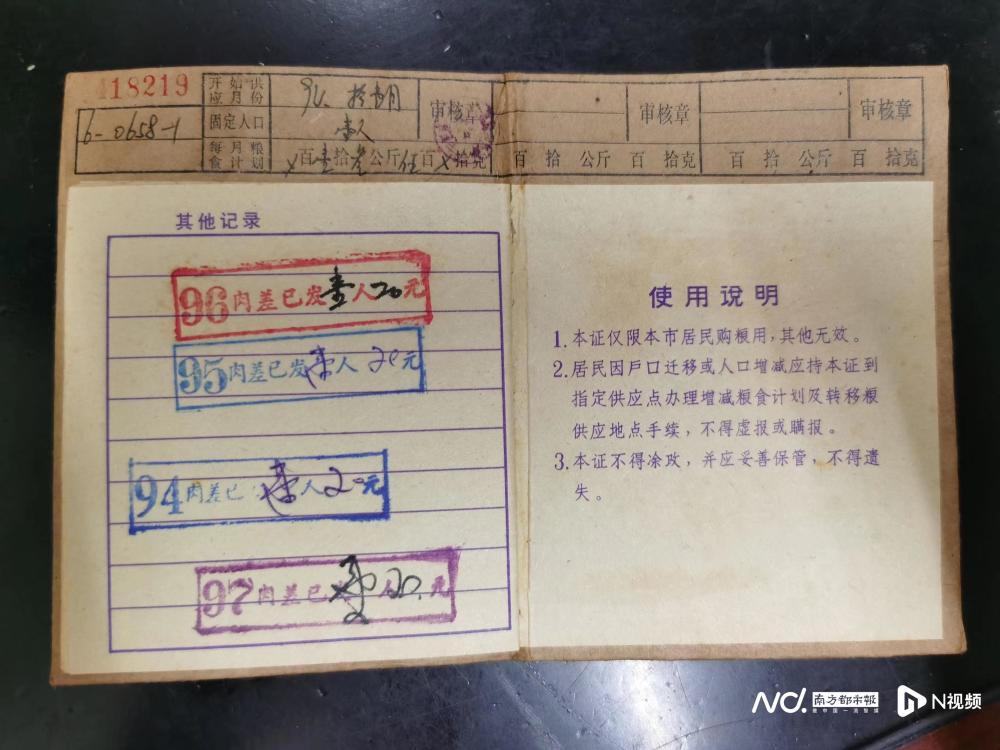 418219
开始供应月份
审核章
审核章
审核章
6-0658-1
固定人口
壹人
每月粮食计划
百壹拾 公斤 百 拾克
百 拾 公斤 百 拾克
百 拾 公斤 百 拾克
其他记录
96肉差已发壹人20元
95肉差已发壹人20元
94肉差已 壹人20元
97肉差已 人20元
使用说明
1.本证仅限本市居民购粮用,其他无效。
2.居民因戶口迁移或人口增减应持本证到
指定供应点办理增减粮食计划及转移粮
供应地点手续,不得虚报或瞒报。
3.本证不得涂改,并应妥善保管,不得遗
失。
南方都市报
N视频